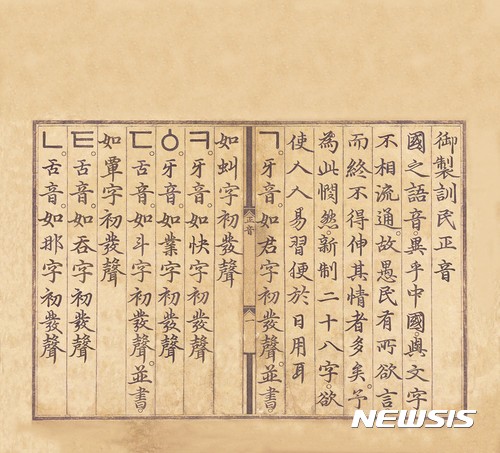 御製訓民正音
國之語音。異乎中國。與文字
不相流通。故愚民有所欲言
而終不得伸其情者多矣。予
為此憫然。新制二十八字。欲
使人人易習便於日用耳
ㄱ。牙音。如君字初發聲。並書
正音
一
如虯字初發聲
ㅋ。牙音。如快字初發聲
ㆁ。牙音。如業字初發聲
ㄷ。舌音。如斗字初發聲。並書
如覃字初發聲
ㅌ。舌音。如呑字初發聲
ㄴ。舌音。如那字初發聲
NEWSIS